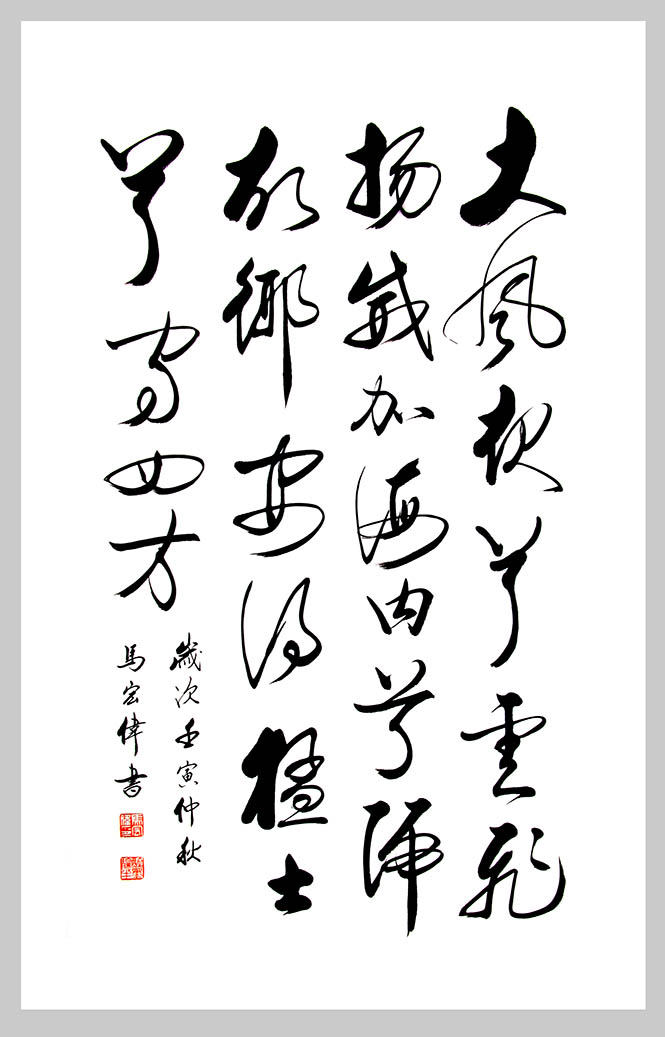 大風起兮雲飛
揚威加海内兮歸
故鄉安得猛士
兮守四方
歲次壬寅仲秋
馬宏偉書